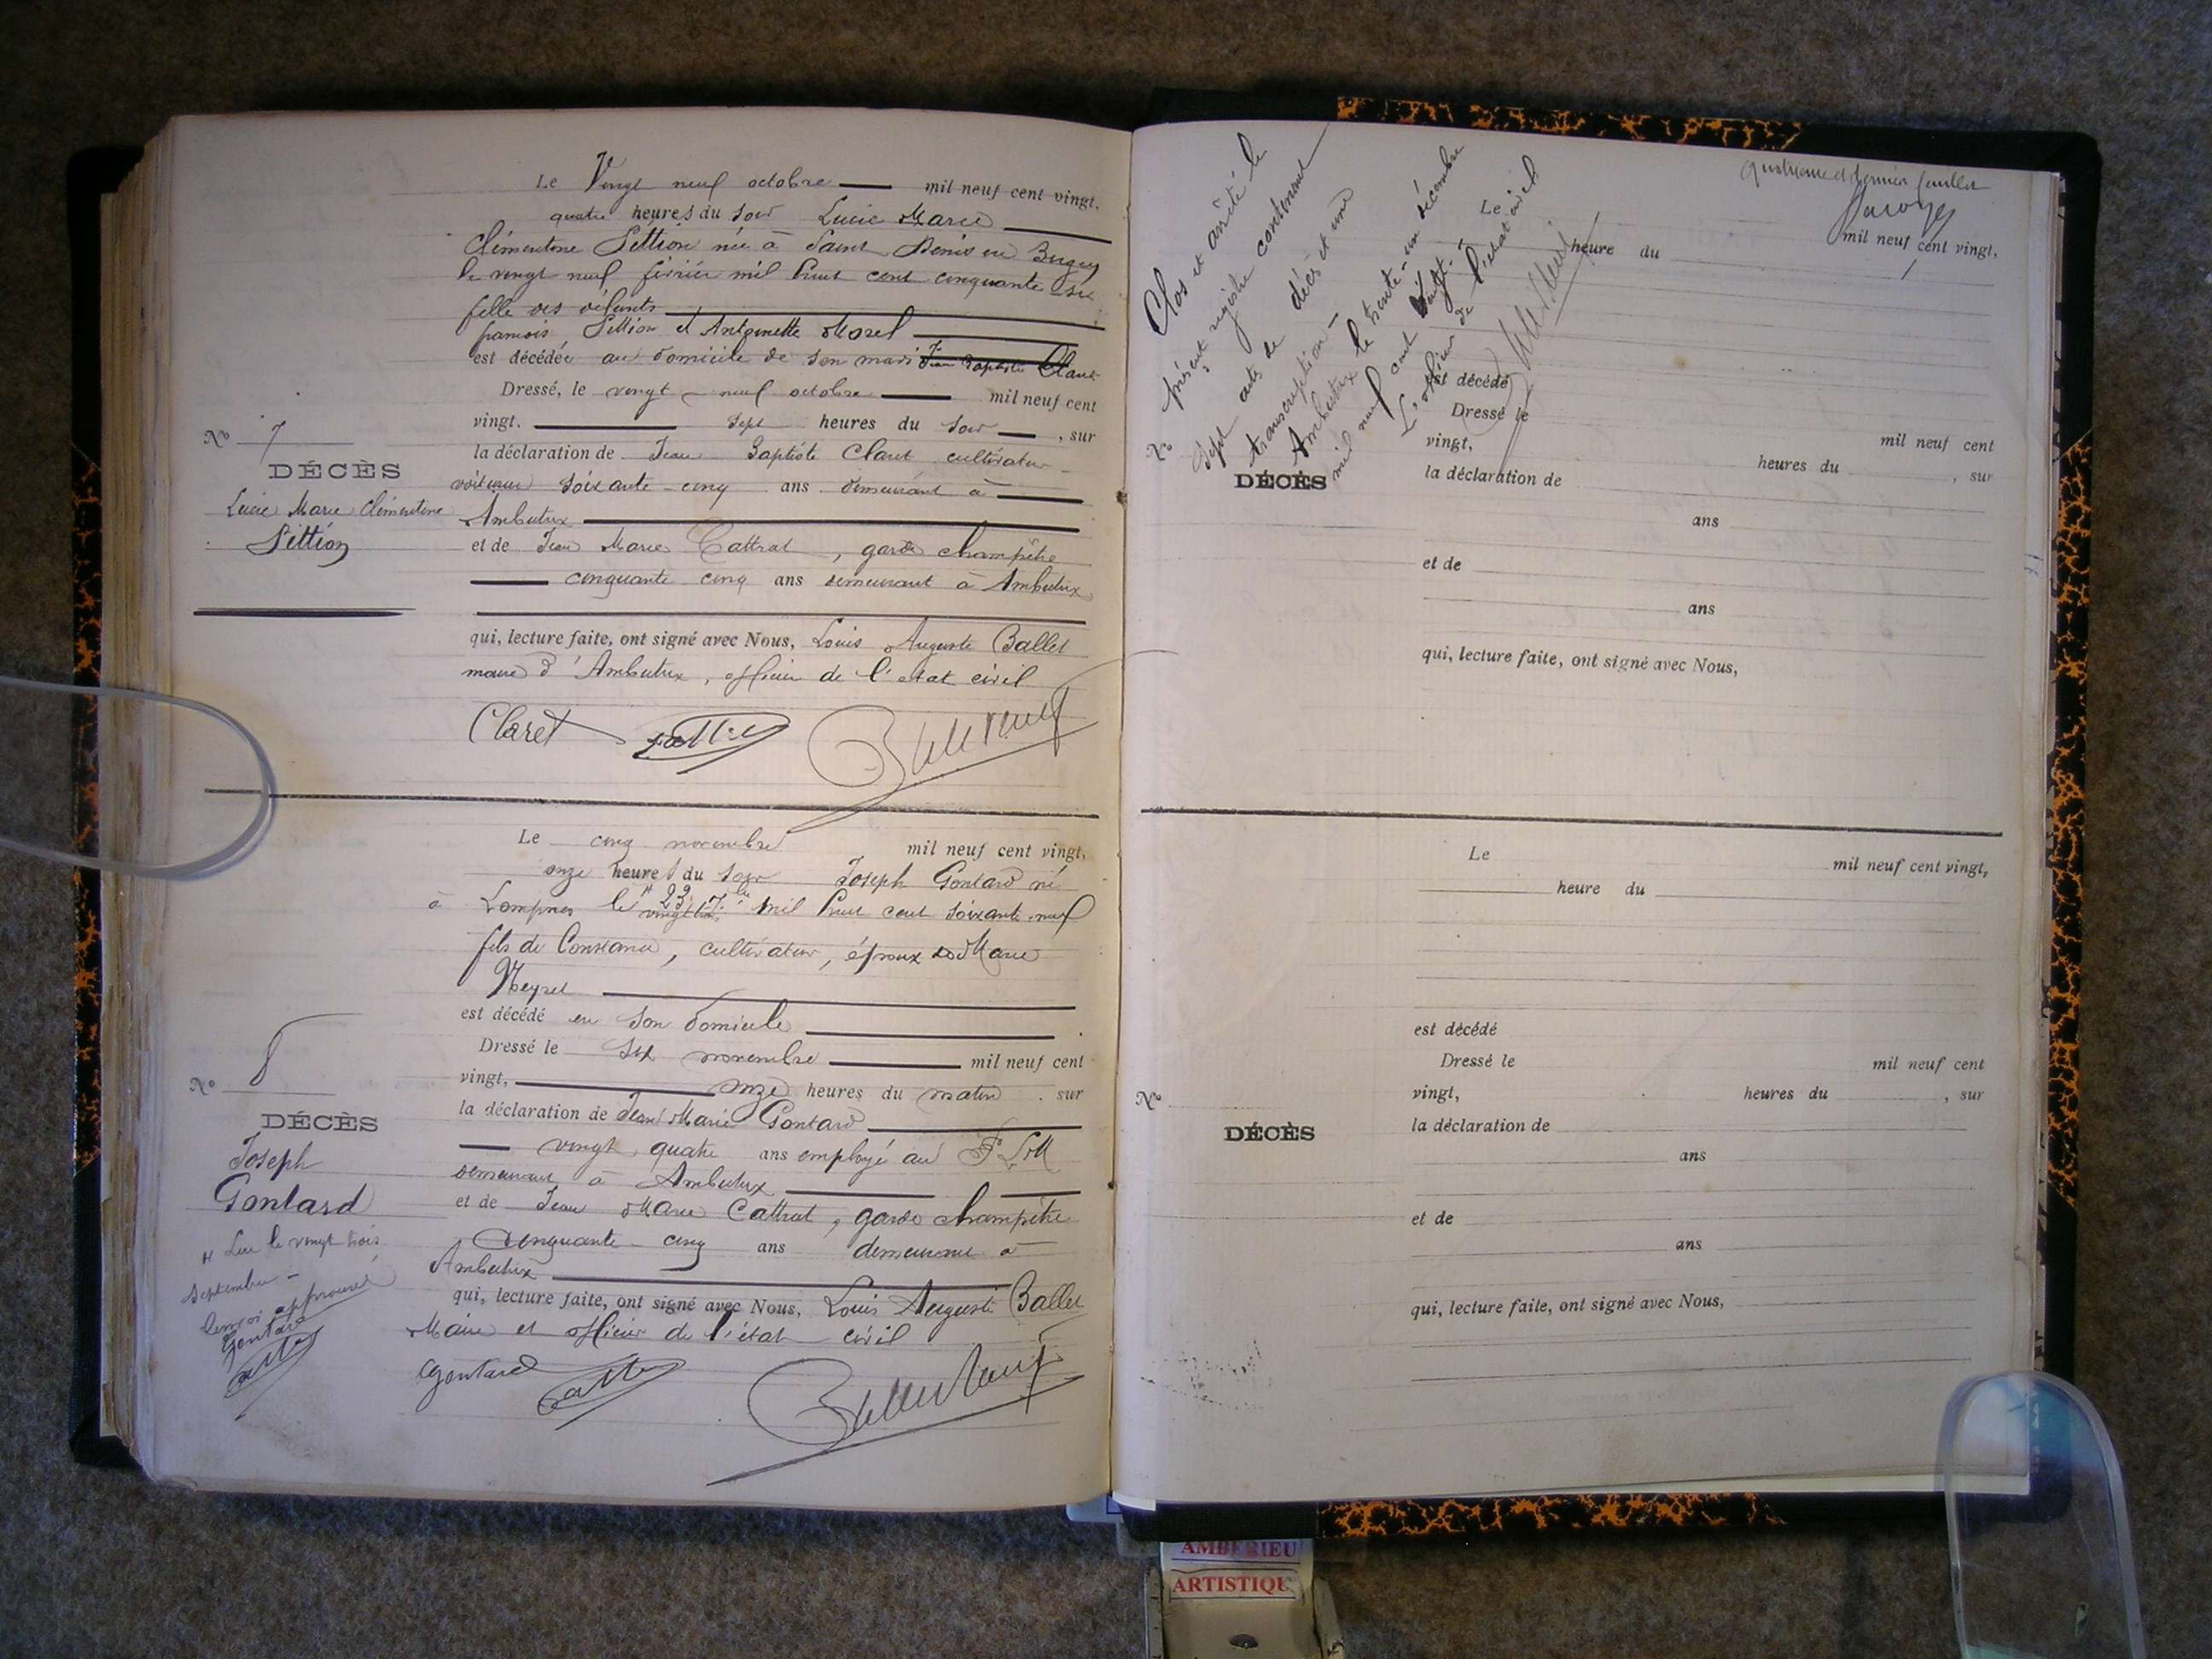 Le Vingt neuf octobre mil neuf cent vingt,
quatre heures du soir Lucie Marie
Clémentine Pittion née à Saint Denis en Bugey
le vingt neuf février mil huit cent cinquante six
fille des défunts
françois Pittion et Antoinette Morel
est décédée au domicile de son mari Jean Baptiste Claret
Dressé, le vingt-neuf octobre mil neuf cent
vingt. sept heures du soir, sur
la déclaration de Jean Baptiste Claret cultivateur
soixante-cinq ans demeurant à
Ambutrix
et de Jean Marie Cattrat, garde champêtre
cinquante cinq ans demeurant à Ambutrix
qui, lecture faite, ont signé avec Nous, Louis Auguste Ballet
maire d'Ambutrix, officier de l'état civil
Claret
No 7
DÉCÈS
Lucie Marie Clémentine
Pittion
Le cinq novembre mil neuf cent vingt,
onze heures du soir Joseph Gontard né
à Lompnes le 23 7bre mil huit cent soixante-neuf
fils de Constance, cultivateur, époux de Marie
Neyret
est décédé en son domicile
Dressé le six novembre mil neuf cent
vingt, onze heures du matin. sur
la déclaration de Jean Marie Gontard
vingt quatre ans employé au P.L.M
demeurant à Ambutrix
et de Jean Marie Cattrat, garde champêtre
Cinquante-cinq ans demeurant à
Ambutrix
qui, lecture faite, ont signé avec Nous, Louis Auguste Ballet
Maire et officier de l'état civil
Gontard
No 8
DÉCÈS
Joseph
Gontard
Lu le vingt trois
Septembre -
Renvoi approuvé
Gontard
Quatrième et dernier feuillet
Clos et arrêté le
présent registre contenant
Sept actes de décès et une
transcription -
Ambutrix le trente-un décembre
mil neuf cent vingt.
L'officier de l'état civil
Le
heure du mil neuf cent vingt,
est décédé
Dressé le mil neuf cent
vingt, heures du , sur
No
DÉCÈS
la déclaration de
ans
et de
ans
qui, lecture faite, ont signé avec Nous,
Le mil neuf cent vingt,
heure du
est décédé
Dressé le mil neuf cent
vingt, heures du , sur
No
DÉCÈS
la déclaration de
ans
et de
ans
qui, lecture faite, ont signé avec Nous,
AMBERIEU
ARTISTIQU